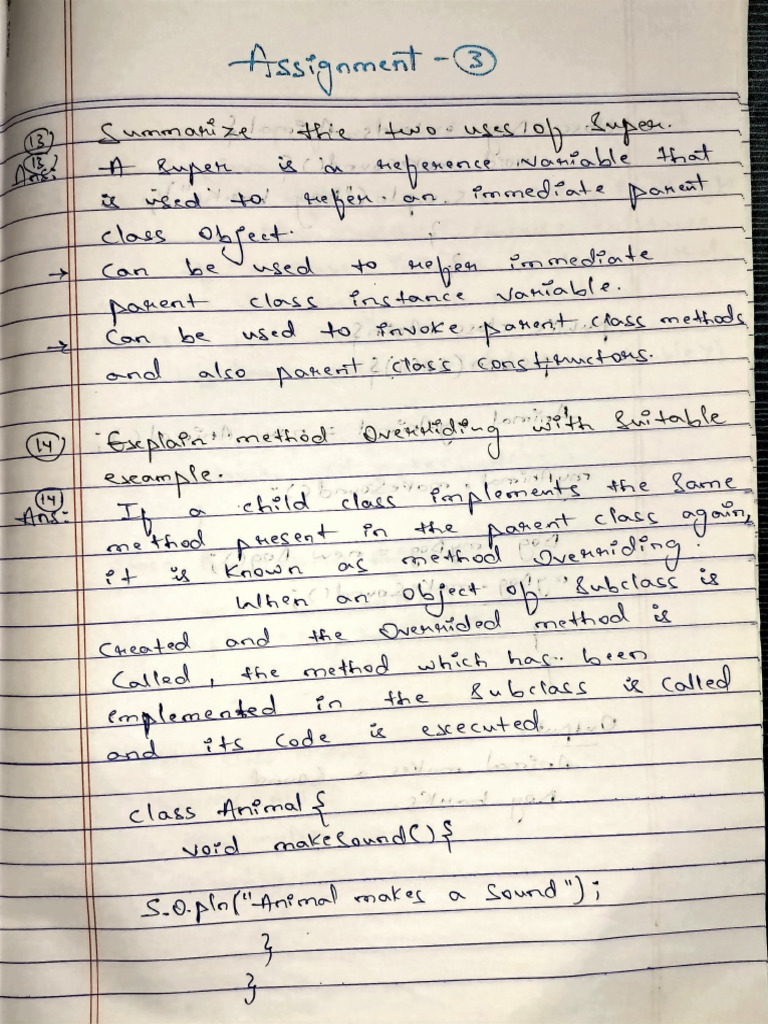 Assignment - 3
13 Summarize the two uses of super.
13 Ans: A super is a reference variable that
is used to refer an immediate parent
class object.
→ Can be used to refer immediate
parent class instance variable.
→ Can be used to invoke parent class methods
and also parent class constructors.
14 Explain method Overriding with suitable
example.
14 Ans: If a child class implements the same
method present in the parent class again,
it is known as method Overriding.
When an object of subclass is
created and the Overrided method is
called, the method which has been
implemented in the subclass is called
and its code is executed.
class Animal {
void makesound() {
S.O.pln("Animal makes a sound");
}
}